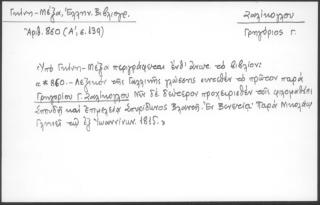 Γκίνη-Μέξα, Ἑλλην. Βιβλιογρ.
Ζαλίκογλου
Ἀριθ. 860 (Α', σ. 139)
Γρηγόριος Γ.
Ὑπὸ Γκίνη-Μέξα περιγράφεται τὸ βιβλίον:
«*860.- Λεξικὸν τῆς Γαλλικῆς γλώσσης συντεθὲν τὸ πρῶτον παρὰ
Γρηγορίου Γ. Ζαλίκογλου Νῦν δὲ δεύτερον προχειρισθὲν τοῖς φιλομαθέσι
Σπουδῇ καὶ ἐπιμελείᾳ Σπυρίδωνος Βλαντῆ. Ἐν Βενετίᾳ Παρὰ Νικολάῳ
Γλυκεῖ τῷ ἐξ Ἰωαννίνων. 1815.»